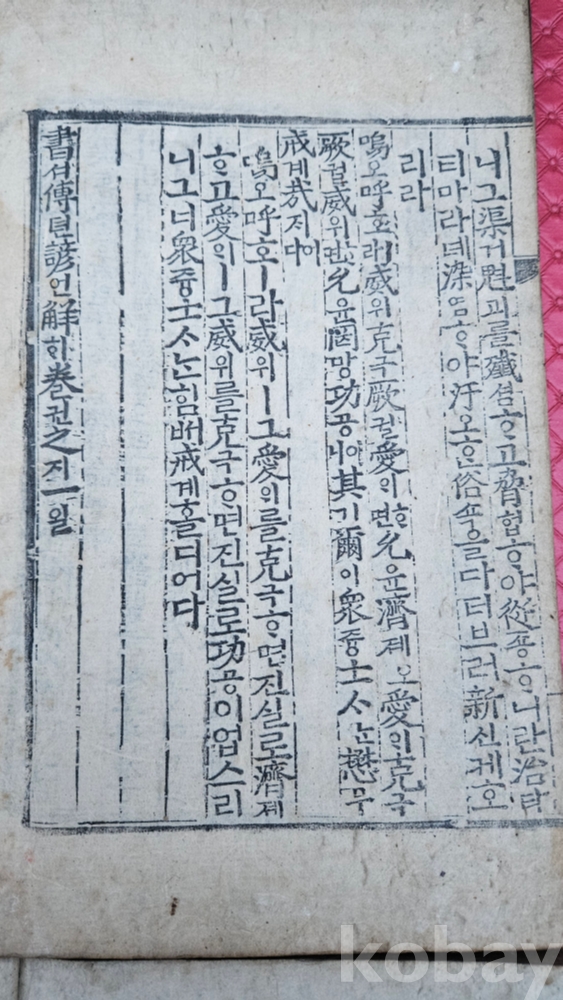 니그渠거魁괴를殲셤ᄒᆞ고脅협ᄒᆞ야從죵ᄒᆞ니란治티
티마라녜染염ᄒᆞ야汙오ᄒᆞᆫ俗쇽을다더브러新신케호
리라
嗚오呼호래威위克극厥궐愛의ᄒᆞ면允윤濟졔오愛의克극
厥궐威위ᄒᆞ면允윤罔망功공이니其기爾이衆즁士ᄉᆞᄂᆞᆫ懋무
戒계哉지어다
嗚오呼호ㅣ라威위ㅣ그愛의를克극ᄒᆞ면진실로濟졔
ᄒᆞ고愛의ㅣ그威위를克극ᄒᆞ면진실로功공이업스리
니그녀衆즁士ᄉᆞᄂᆞᆫ힘ᄡᅥ戒계홀디어다
書셔傳젼諺언解ᄒᆡ卷권之지一일
kobay